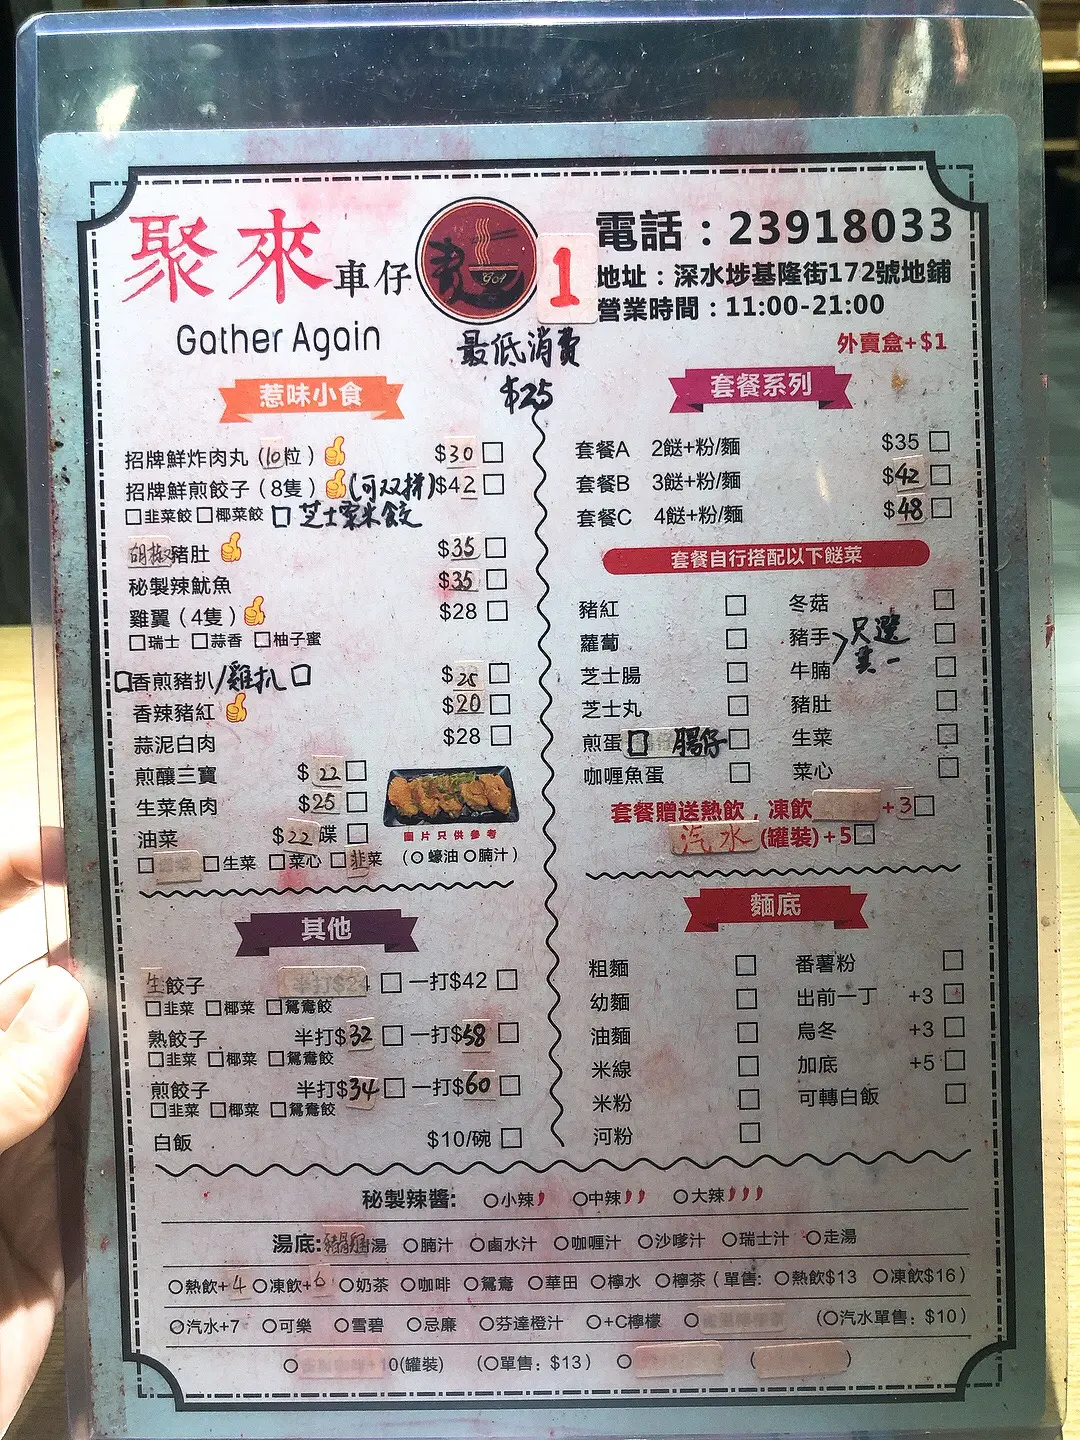 聚來車仔
Gather Again
1
電話：23918033
地址：深水埗基隆街172號地鋪
營業時間：11:00-21:00
外賣盒+$1
最低消費
$25
惹味小食
招牌鮮炸肉丸（10粒） $30
招牌鮮煎餃子（8隻） (可双拼) $42
韭菜餃 椰菜餃 芝士粟米餃
胡椒豬肚 $35
秘製辣魷魚 $35
雞翼（4隻） $28
瑞士 蒜香 柚子蜜
香煎豬扒/雞扒 $28
香辣豬紅 $20
蒜泥白肉 $28
煎釀三寶 $22
生菜魚肉 $25
油菜 $22碟
生菜 菜心 韭菜 （蠔油 腩汁）
圖片只供參考
其他
生餃子 一打$42
韭菜 椰菜 鴛鴦餃
熟餃子 半打$32 一打$58
韭菜 椰菜 鴛鴦餃
煎餃子 半打$34 一打$60
韭菜 椰菜 鴛鴦餃
白飯 $10/碗
套餐系列
套餐A 2餸+粉/麵 $35
套餐B 3餸+粉/麵 $42
套餐C 4餸+粉/麵 $48
套餐自行搭配以下餸菜
豬紅 冬菇
蘿蔔 豬手 只選
芝士腸 牛腩 其一
芝士丸 豬肚
煎蛋 腸仔 生菜
咖喱魚蛋 菜心
套餐贈送熱飲，凍飲 +3
汽水(罐裝)+5
麵底
粗麵 番薯粉
幼麵 出前一丁 +3
油麵 烏冬 +3
米線 加底 +5
米粉 可轉白飯
河粉
秘製辣醬: 小辣 中辣 大辣
湯底: 湯 腩汁 鹵水汁 咖喱汁 沙嗲汁 瑞士汁 走湯
熱飲+4 凍飲+6 奶茶 咖啡 鴛鴦 華田 檸水 檸茶（單售: 熱飲$13 凍飲$16）
汽水+7 可樂 雪碧 忌廉 芬達橙汁 +C檸檬 （汽水單售: $10）
10(罐裝) （單售: $13）